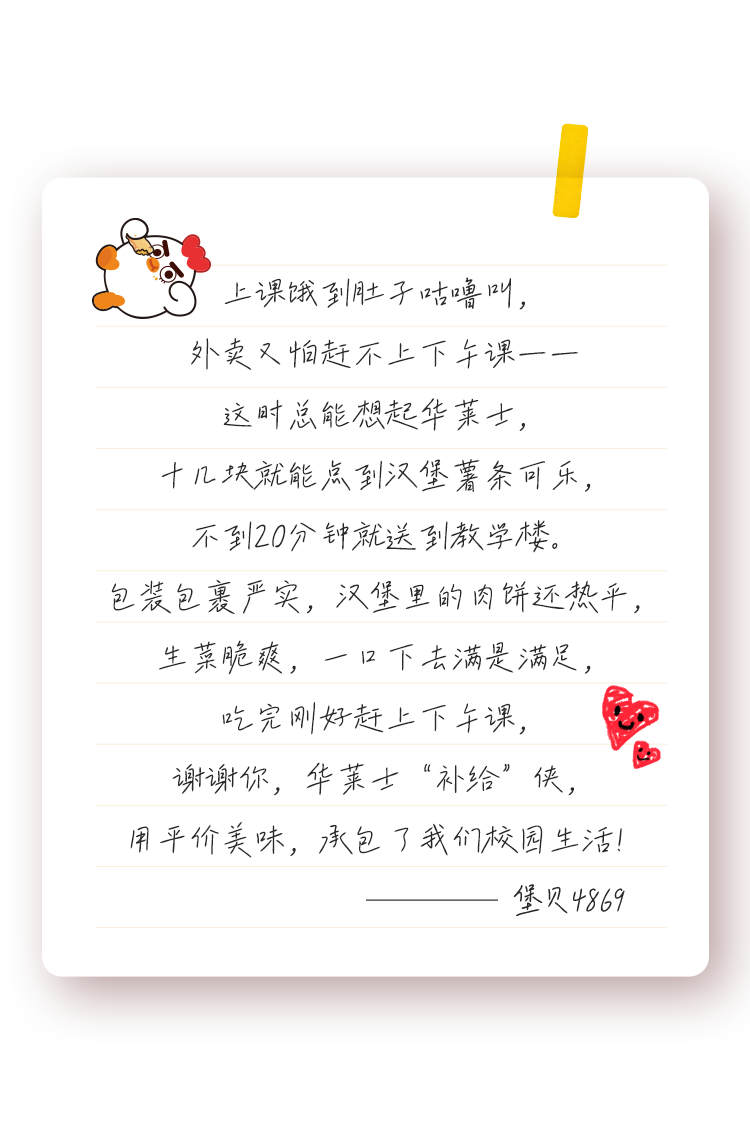 上课饿到肚子咕噜叫，
外卖又怕赶不上下午课——
这时总能想起华莱士，
十几块就能点到汉堡薯条可乐，
不到20分钟就送到教学楼。
包装包裹严实，汉堡里的肉饼还热乎，
生菜脆爽，一口下去满是满足，
吃完刚好赶上下午课，
谢谢你，华莱士“补给”侠，
用平价美味，承包了我们校园生活！
——堡贝4869